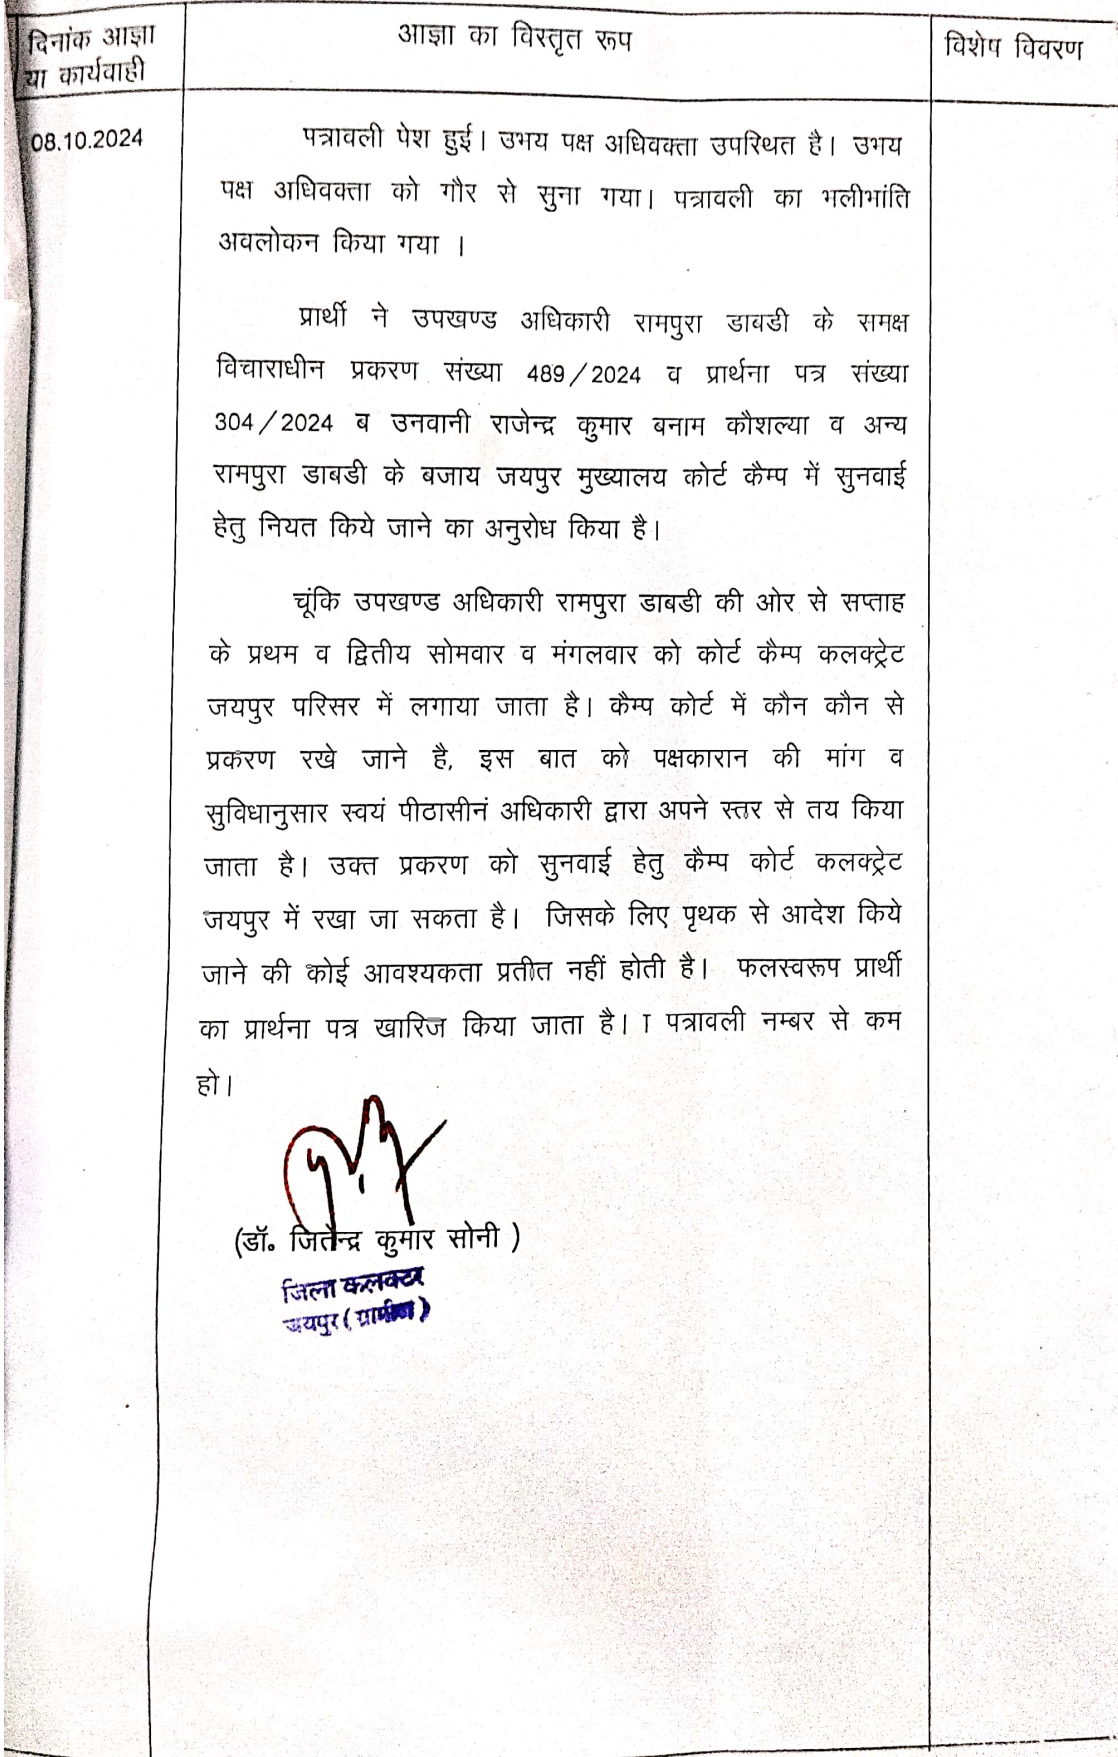 दिनांक आज्ञा
या कार्यवाही
आज्ञा का विस्तृत रूप
विशेष विवरण
08.10.2024
पत्रावली पेश हुई। उभय पक्ष अधिवक्ता उपस्थित है। उभय
पक्ष अधिवक्ता को गौर से सुना गया। पत्रावली का भलीभांति
अवलोकन किया गया ।
प्रार्थी ने उपखण्ड अधिकारी रामपुरा डावडी के समक्ष
विचाराधीन प्रकरण संख्या 489/2024 व प्रार्थना पत्र संख्या
304/2024 ब उनवानी राजेन्द्र कुमार बनाम कौशल्या व अन्य
रामपुरा डाबडी के बजाय जयपुर मुख्यालय कोर्ट कैम्प में सुनवाई
हेतु नियत किये जाने का अनुरोध किया है।
चूंकि उपखण्ड अधिकारी रामपुरा डाबडी की ओर से सप्ताह
के प्रथम व द्वितीय सोमवार व मंगलवार को कोर्ट कैम्प कलक्ट्रेट
जयपुर परिसर में लगाया जाता है। कैम्प कोर्ट में कौन कौन से
प्रकरण रखे जाने है, इस बात को पक्षकारान की मांग व
सुविधानुसार स्वयं पीठासीनं अधिकारी द्वारा अपने स्तर से तय किया
जाता है। उक्त प्रकरण को सुनवाई हेतु कैम्प कोर्ट कलक्ट्रेट
जयपुर में रखा जा सकता है। जिसके लिए पृथक से आदेश किये
जाने की कोई आवश्यकता प्रतीत नहीं होती है। फलस्वरूप प्रार्थी
का प्रार्थना पत्र खारिज किया जाता है। ा पत्रावली नम्बर से कम
हो।
(डॉ. जितेन्द्र कुमार सोनी )
जिला कलक्टर
जयपुर (ग्रामीण)